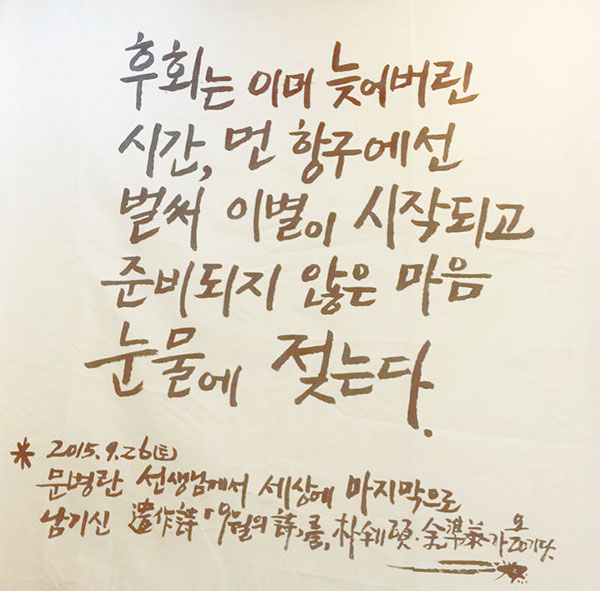 후회는 이미 늦어버린
시간, 먼 항구에선
벌써 이별이 시작되고
준비되지 않은 마음
눈물에 젖는다.
* 2015.9.26(토)
문병란 선생님께서 세상에 마지막으로
남기신 遺作詩「9월의 詩」를, 朴 碩·金準 가